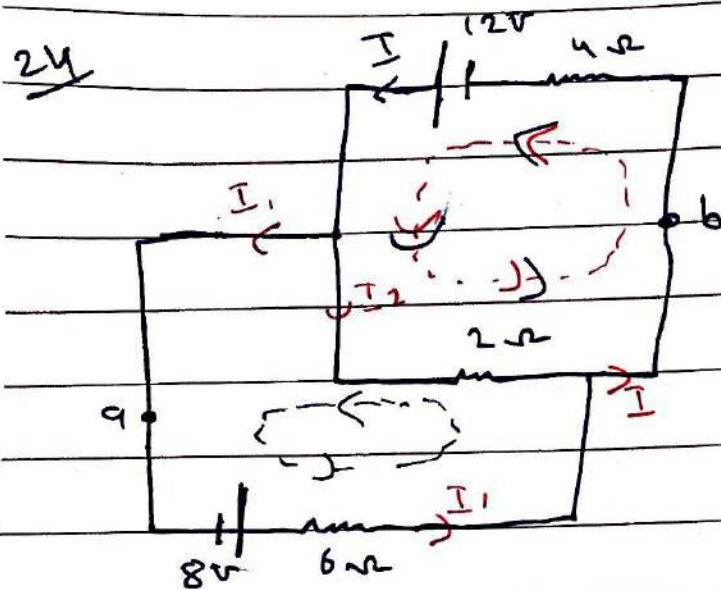 24
I 12V 4Ω
I₁
b
I₂
2Ω
a
I
I₁
8V 6Ω